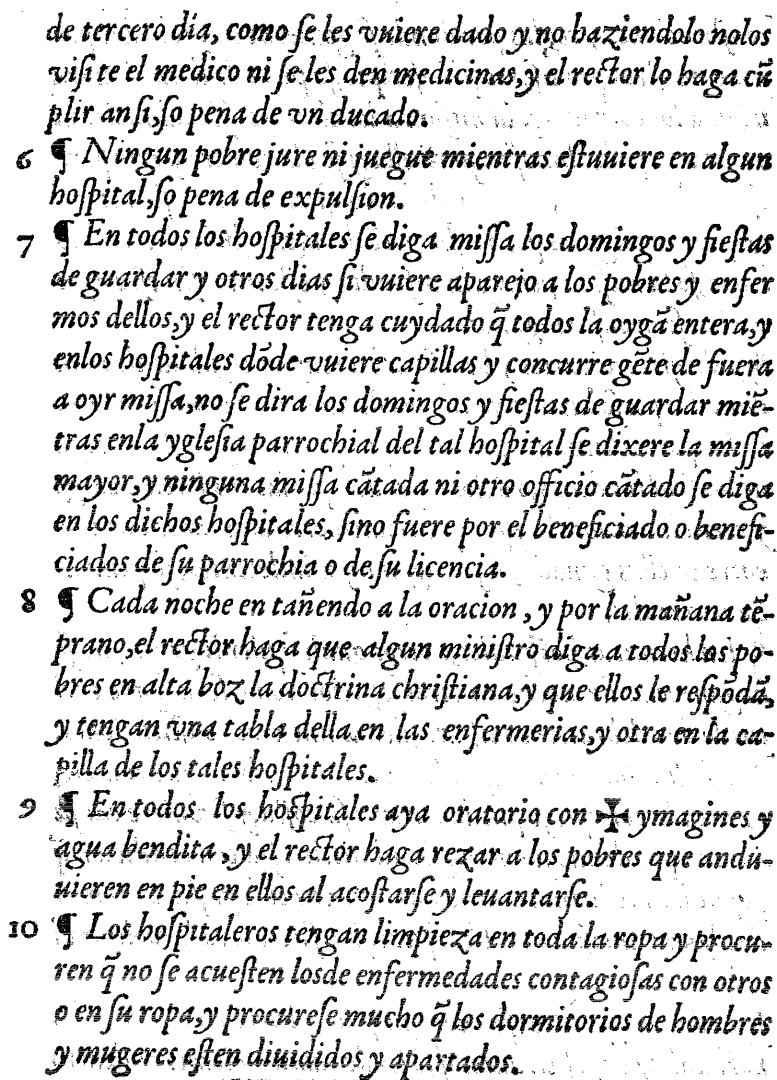 de tercero dia, como ſe les vuiere dado y no haziendolo nolos
viſite el medico ni ſe les den medicinas, y el rector lo haga cũ
plir anſi, ſo pena de vn ducado.
6 ¶ Ningun pobre jure ni juegue mientras eſtuuiere en algun
hoſpital, ſo pena de expulſion.
7 ¶ En todos los hoſpitales ſe diga miſſa los domingos y fieſtas
de guardar y otros dias ſi vuiere aparejo a los pobres y enfer
mos dellos, y el rector tenga cuydado q̃ todos la oygã entera, y
enlos hoſpitales dõde vuiere capillas y concurre gẽte de fuera
a oyr miſſa, no ſe dira los domingos y fieſtas de guardar miẽ-
tras enla ygleſia parrochial del tal hoſpital ſe dixere la miſſa
mayor, y ninguna miſſa cãtada ni otro officio cãtado ſe diga
en los dichos hoſpitales, ſino fuere por el beneficiado o benefi-
ciados de ſu parrochia o de ſu licencia.
8 ¶ Cada noche en tañendo a la oracion, y por la mañana tẽ-
prano, el rector haga que algun miniſtro diga a todos los po-
bres en alta boz la doctrina chriſtiana, y que ellos le reſpõdã,
y tengan vna tabla della en las enfermerias, y otra en la ca-
pilla de los tales hoſpitales.
9 ¶ En todos los hoſpitales aya oratorio con ✠ ymagines y
agua bendita, y el rector haga rezar a los pobres que andu-
uieren en pie en ellos al acoſtarſe y leuantarſe.
10 ¶ Los hoſpitaleros tengan limpieza en toda la ropa y procu-
ren q̃ no ſe acueſten losde enfermedades contagioſas con otros
o en ſu ropa, y procureſe mucho q̃ los dormitorios de hombres
y mugeres eſten diuididos y apartados.